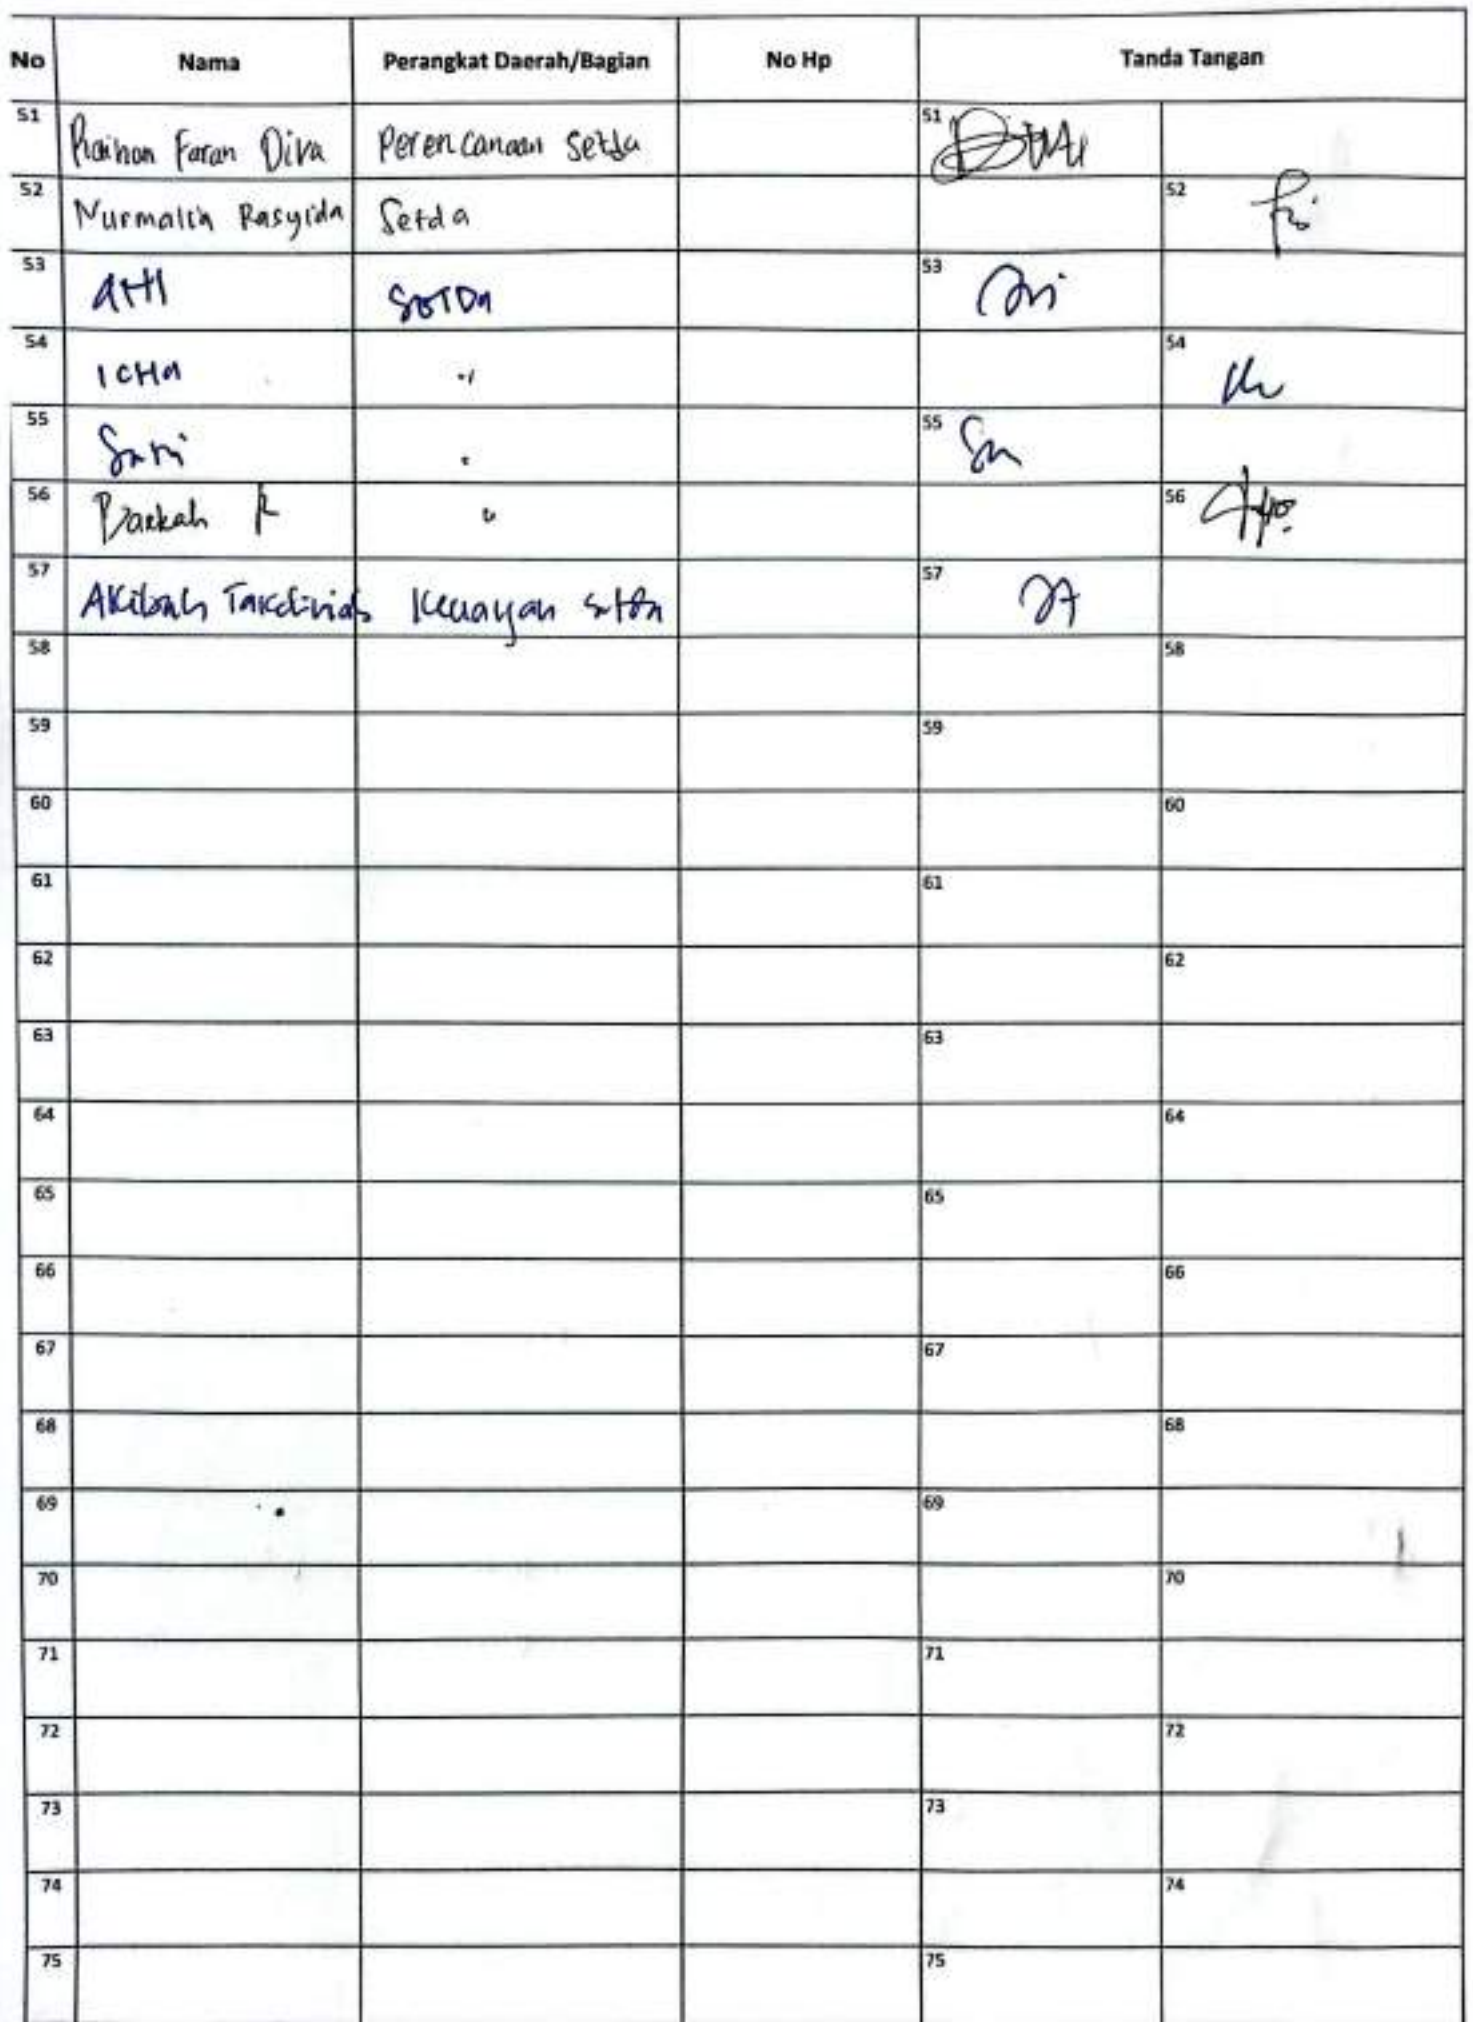 No Nama Perangkat Daerah/Bagian No Hp Tanda Tangan
51 Raihan Faran Diva Perencanaan Setda 51
52 Nurmalia Rasyida Setda 52
53 ATI SETDA 53
54 ICHA 54
55 Sari 55
56 Barkah R 56
57 Akibah 57
58 58
59 59
60 60
61 61
62 62
63 63
64 64
65 65
66 66
67 67
68 68
69 69
70 70
71 71
72 72
73 73
74 74
75 75